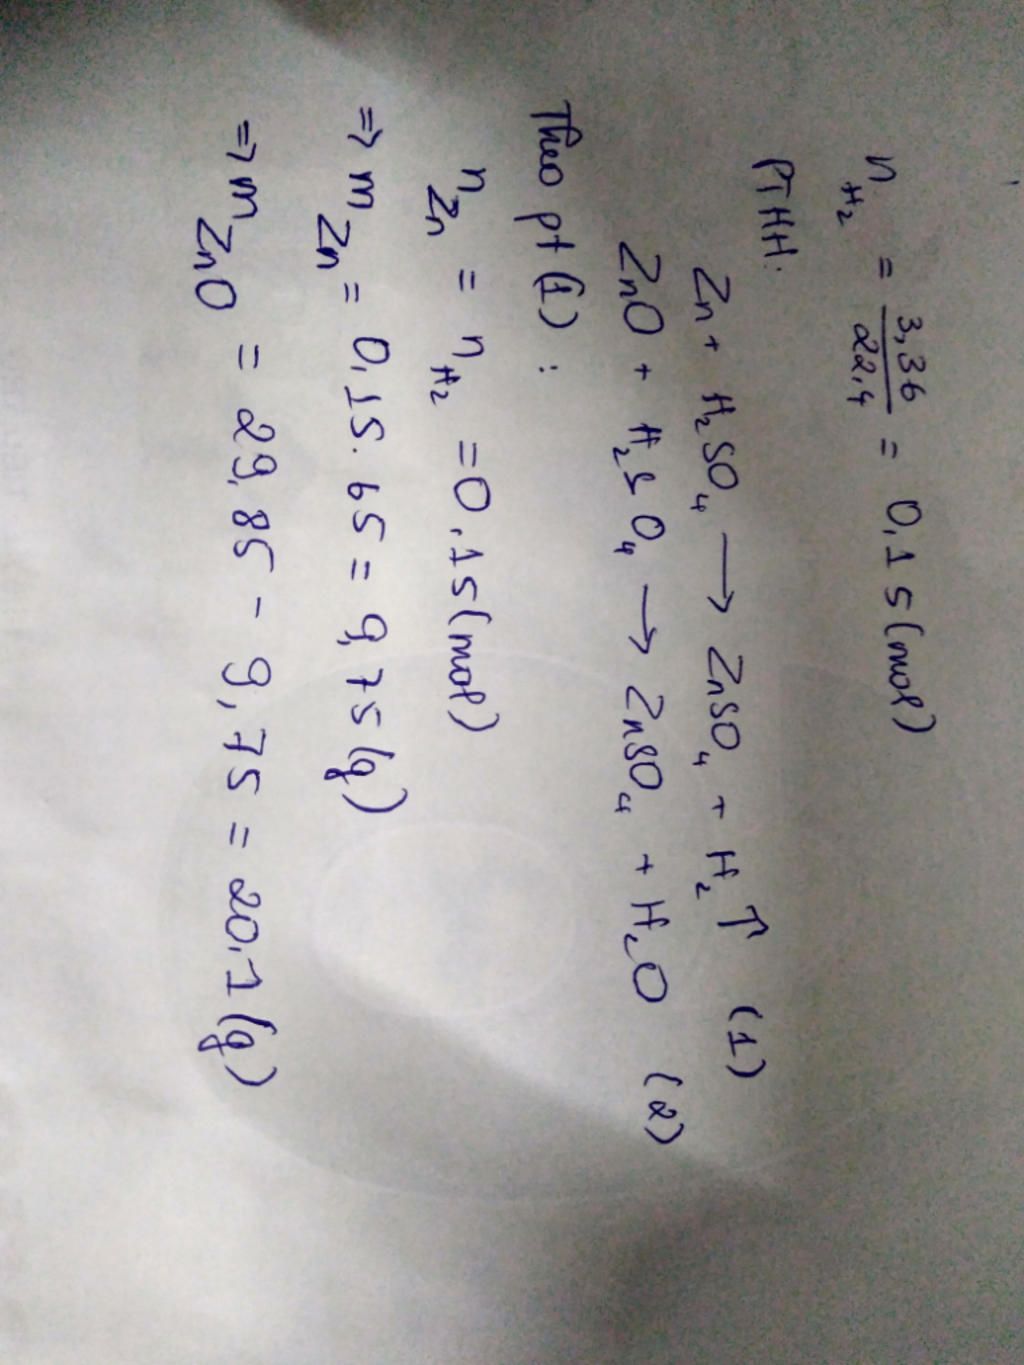 n H₂ = 3,36/22,4 = 0,15 (mol)
PTHH:
Zn + H₂SO₄ → ZnSO₄ + H₂ ↑ (1)
ZnO + H₂SO₄ → ZnSO₄ + H₂O (2)
Theo pt (1) :
n Zn = n H₂ = 0,15 (mol)
=> m Zn = 0,15 . 65 = 9,75 (g)
=> m ZnO = 29,85 - 9,75 = 20,1 (g)